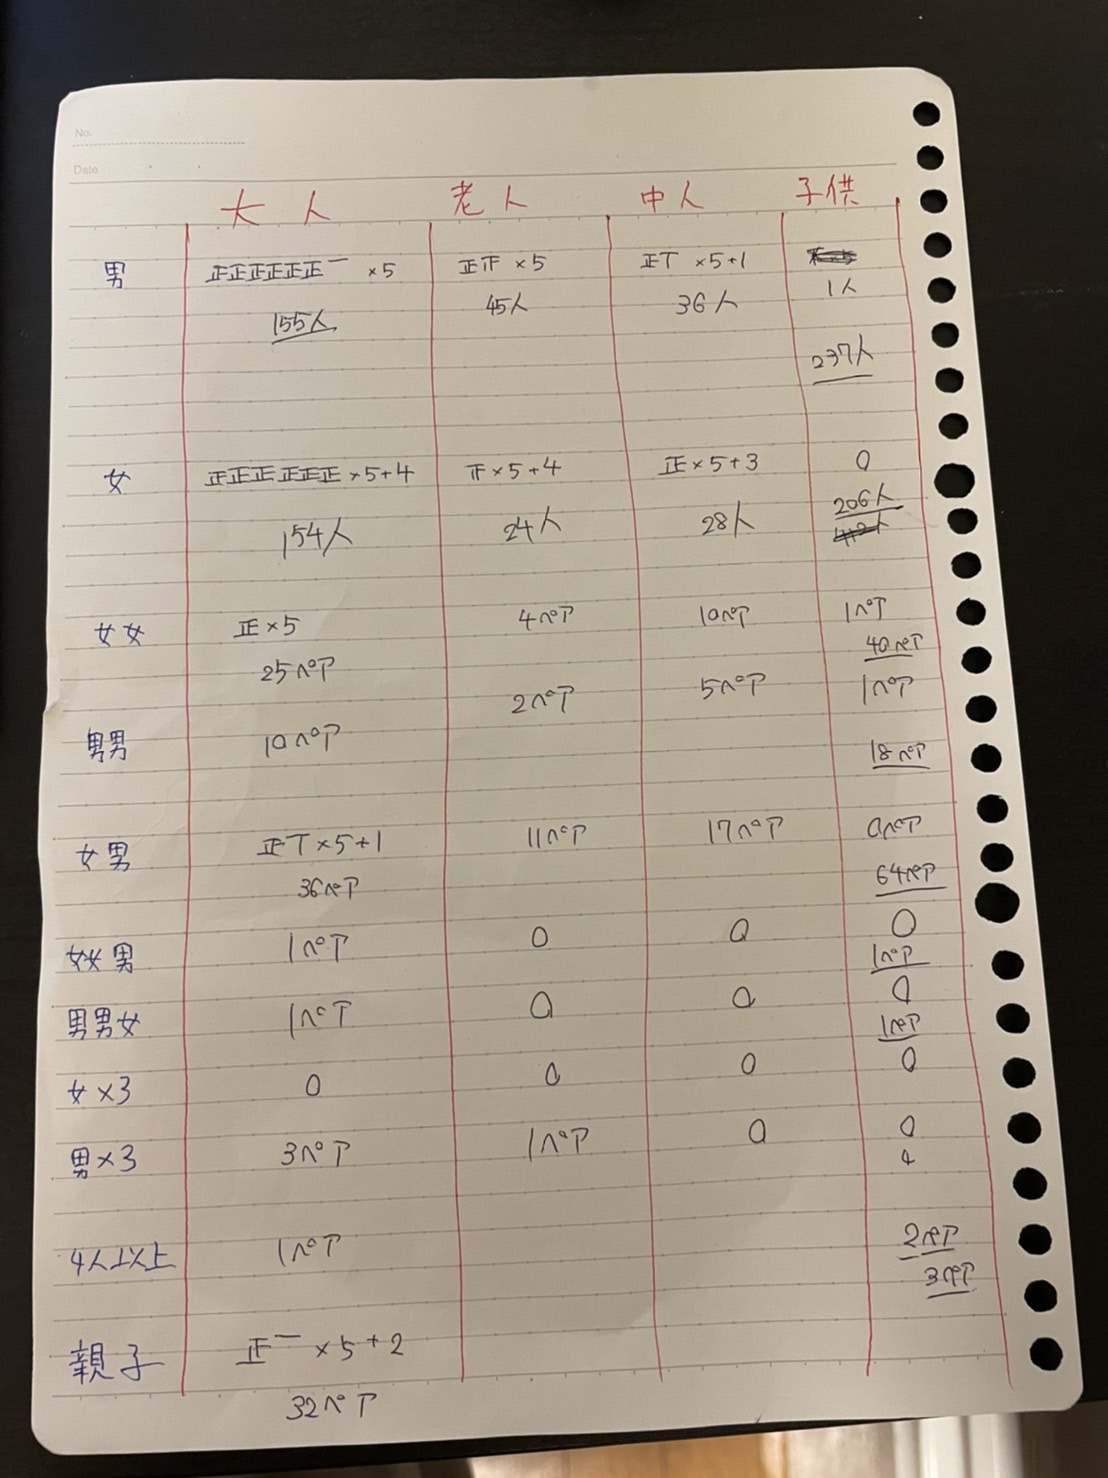 No.
Date
大人 老人 中人 子供
男 正正正正正正一 ×5 正正 ×5 正T ×5+1
155人 45人 36人 1人
237人
女 正正正正正正 ×5+4 正×5+4 正×5+3 0
154人 24人 28人 206人
女女 正×5 4ペア 10ペア 1ペア
25ペア 40ペア
男男 10ペア 2ペア 5ペア 1ペア
18ペア
女男 正T×5+1 11ペア 17ペア 0ペア
36ペア 64ペア
女女男 1ペア 0 0 0
1ペア
男男女 1ペア 0 0 0
1ペア
女×3 0 0 0 0
男×3 3ペア 1ペア 0 0
4
4人以上 1ペア 2ペア
3ペア
親子 正一 ×5+2
32ペア